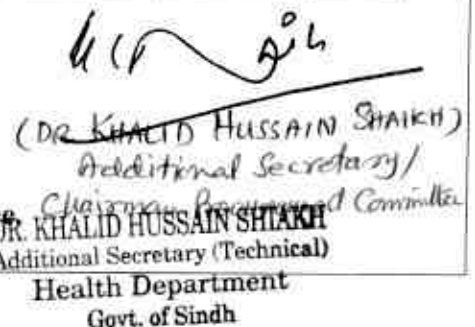 (DR KHALID HUSSAIN SHAIKH)
Additional Secretary/
Chairman Procurement Committee
DR. KHALID HUSSAIN SHIAKH
Additional Secretary (Technical)
Health Department
Govt. of Sindh